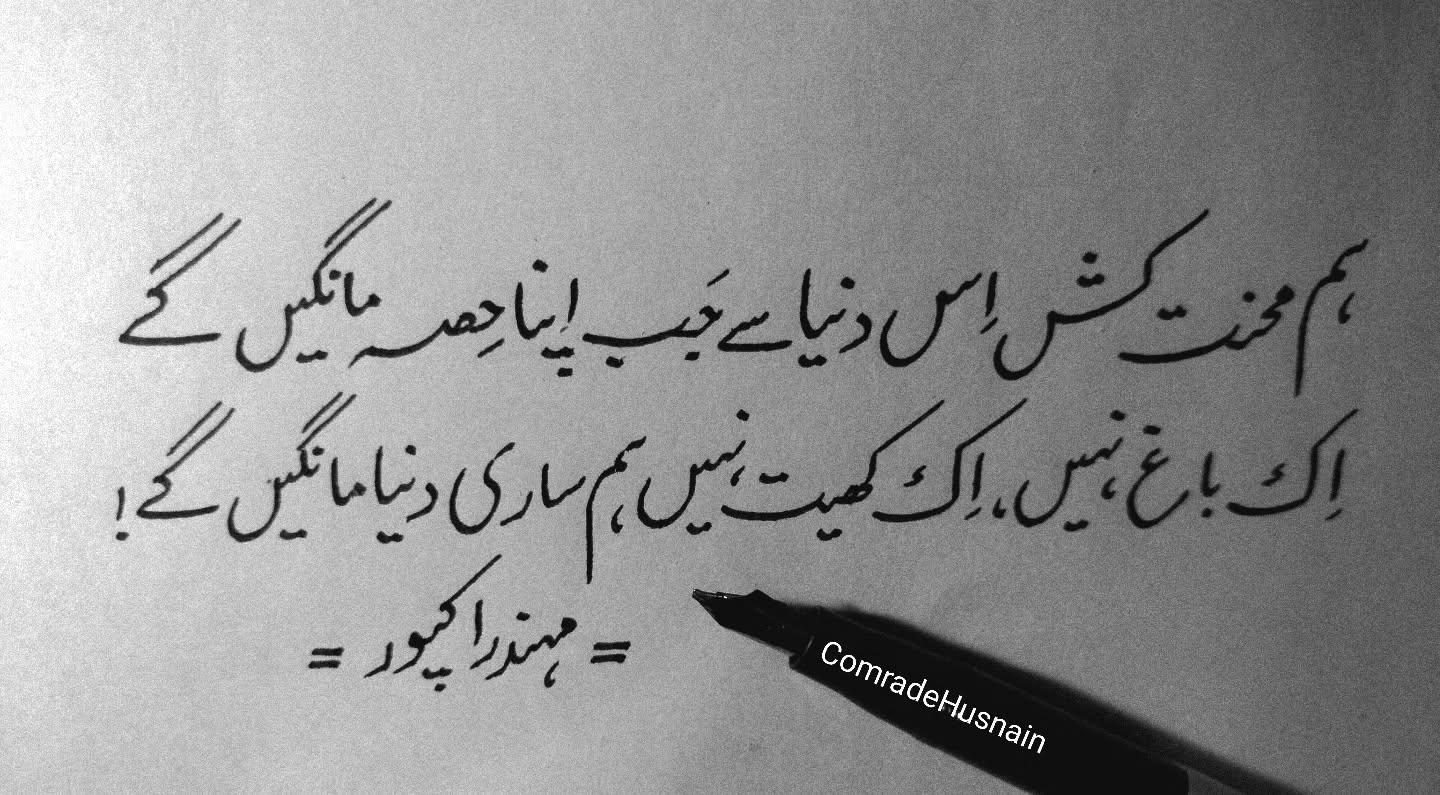 ہم محنت کش اِس دنیا سے جَب اپنا حِصہ مانگیں گے
اِک باغ نہیں، اِک کھیت نہیں ہم ساری دنیا مانگیں گے!
= مہندرا کپور =
ComradeHusnain